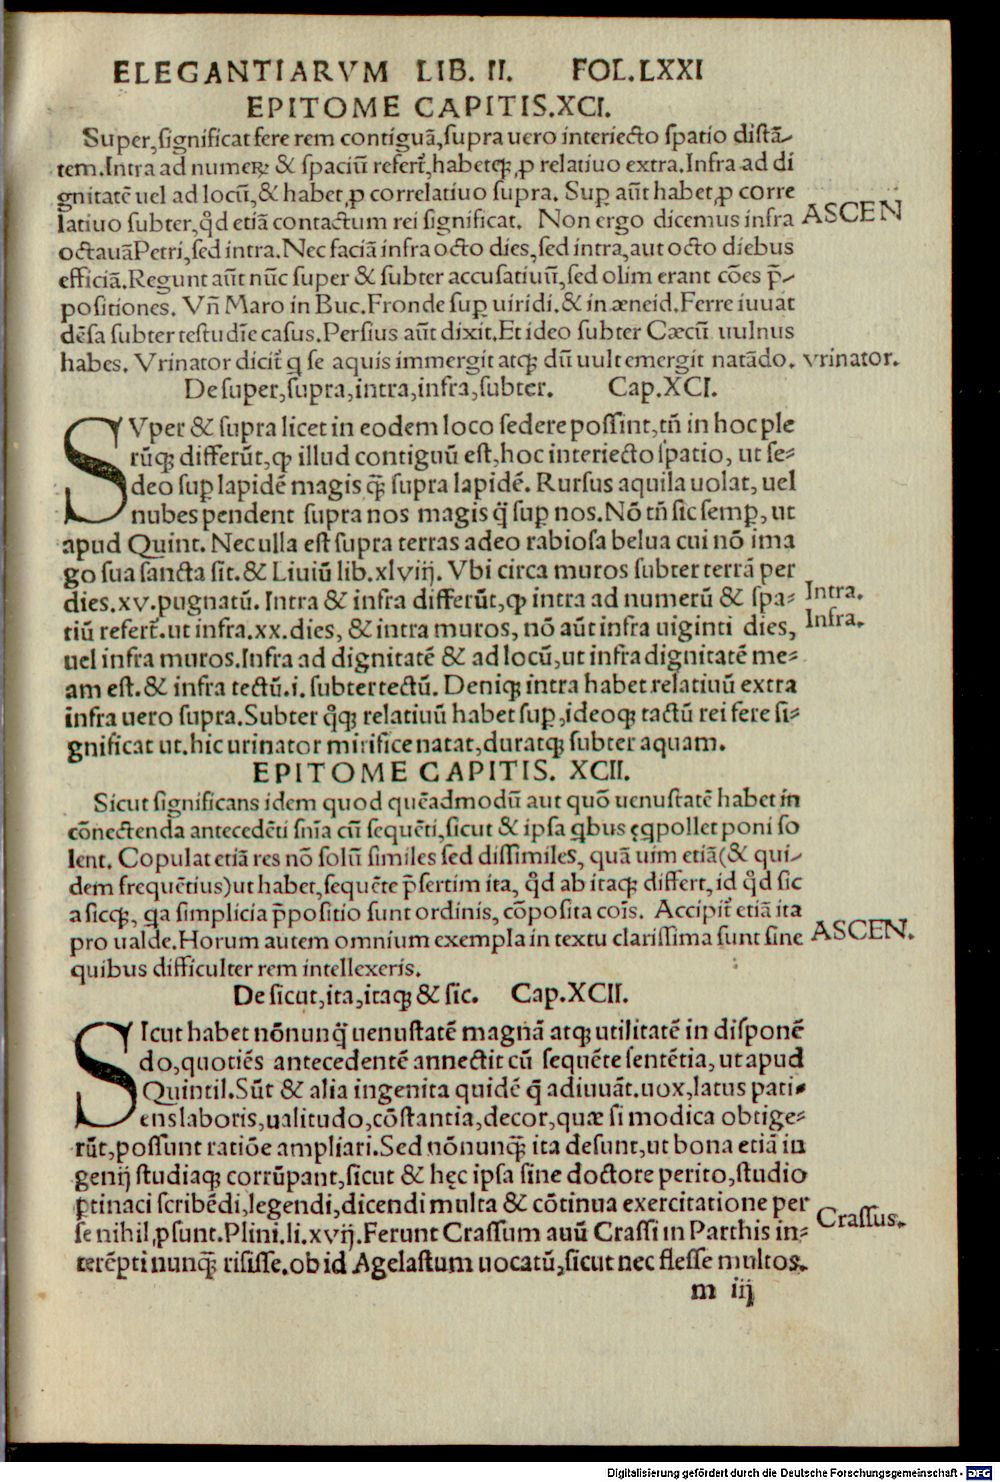 ELEGANTIARVM LIB. II. FOL.LXXI
EPITOME CAPITIS.XCI.
Super,significat fere rem contiguā,supra uero interiecto spatio distā-
tem.Intra ad numeꝝ & spaciū refert̄,habetqꝫ ꝓ relatiuo extra.Infra ad di
gnitatē uel ad locū,& habet ꝓ correlatiuo supra. Suꝑ aūt habet ꝓ corre
latiuo subter,qd̄ etiā contactum rei significat. Non ergo dicemus infra
ASCEN
octauā Petri,sed intra.Nec faciā infra octo dies,sed intra,aut octo diebus
efficiā.Regunt aūt nūc super & subter accusatiuū,sed olim erant cōes p̄-
positiones. Vñ Maro in Buc.Fronde suꝑ uiridi.& in æneid.Ferre iuuat
dēsa subter testudīe casus.Persius aūt dixit.Et ideo subter Cæcū uulnus
habes. Vrinator dicit̄ q se aquis immergit atqꝫ dū uult emergit natādo.
vrinator.
De super,supra,intra,infra,subter. Cap.XCI.
SVper & supra licet in eodem loco sedere possint,tñ in hoc ple
rūqꝫ differūt,ꝙ illud contiguū est,hoc interiecto spatio, ut se-
deo suꝑ lapidē magis q̄ꝫ supra lapidē. Rursus aquila uolat, uel
nubes pendent supra nos magis q̄ suꝑ nos.Nō tñ sic semꝑ, ut
apud Quint. Nec ulla est supra terras adeo rabiosa belua cui nō ima
go sua sancta sit.& Liuiū lib.xlviij. Vbi circa muros subter terrā per
dies.xv.pugnatū. Intra & infra differūt,ꝙ intra ad numerū & spa-
Intra.
tiū refert̄.ut infra.xx.dies, & intra muros, nō aūt infra uiginti dies,
Infra.
uel infra muros.Infra ad dignitatē & ad locū,ut infra dignitatē me-
am est.& infra tectū.i. subter tectū. Deniqꝫ intra habet relatiuū extra
infra uero supra.Subter qͦqꝫ relatiuū habet suꝑ,ideoqꝫ tactū rei fere si-
gnificat ut.hic urinator mirifice natat,duratqꝫ subter aquam.
EPITOME CAPITIS. XCII.
Sicut significans idem quod quēadmodū aut quō uenustatē habet in
cōnectenda antecedēti snīa cū sequēti,sicut & ipsa qbus ęqpollet poni so
lent. Copulat etiā res nō solū similes sed dissimiles, quā uim etiā(& qui-
dem frequētius)ut habet,sequēte p̄sertim ita, qd̄ ab itaqꝫ differt,id qd̄ sic
a siccqꝫ, qa simplicia p̄positio sunt ordinis, cōposita cōis. Accipit̄ etiā ita
pro ualde.Horum autem omnium exempla in textu clarissima sunt sine
ASCEN.
quibus difficulter rem intellexeris.
De sicut,ita,itaqꝫ & sic. Cap.XCII.
SIcut habet nōnunq̄ uenustatē magnā atqꝫ utilitatē in disponē
do,quotiēs antecedentē annectit cū sequēte sentētia, ut apud
Quintil.Sūt & alia ingenita quidē q̄ adiuuāt.uox,latus pati-
ens laboris,ualitudo,cōstantia,decor,quæ si modica obtige-
rūt,possunt ratiōe ampliari.Sed nōnunq̄ꝫ ita desunt,ut bona etiā in
genij studiaqꝫ corrūpant,sicut & hęc ipsa sine doctore perito,studio
ꝑtinaci scribēdi,legendi,dicendi multa & cōtinua exercitatione per
se nihil ꝓsunt.Plini.li.xvij.Ferunt Crassum auū Crassi in Parthis in-
Crassus.
terēpti nunq̄ꝫ risisse.ob id Agelastum uocatū,sicut nec flesse multos.
m iij
Digitalisierung gefördert durch die Deutsche Forschungsgemeinschaft - DFG